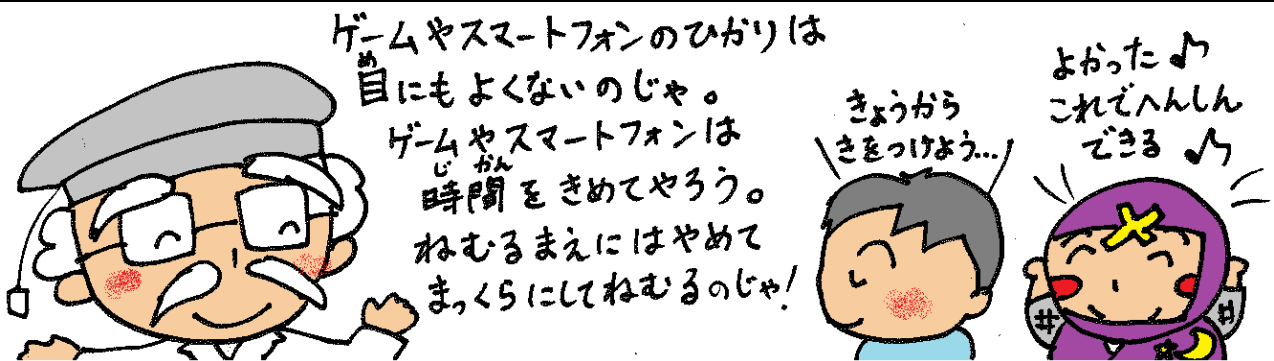 ゲームやスマートフォンのひかりは
目にもよくないのじゃ。
め
ゲームやスマートフォンは
時間をきめてやろう。
じ かん
ねむるまえにはやめて
まっくらにしてねむるのじゃ!
きょうから
きをつけよう…
よかった♪
これでへんしん
できる♪